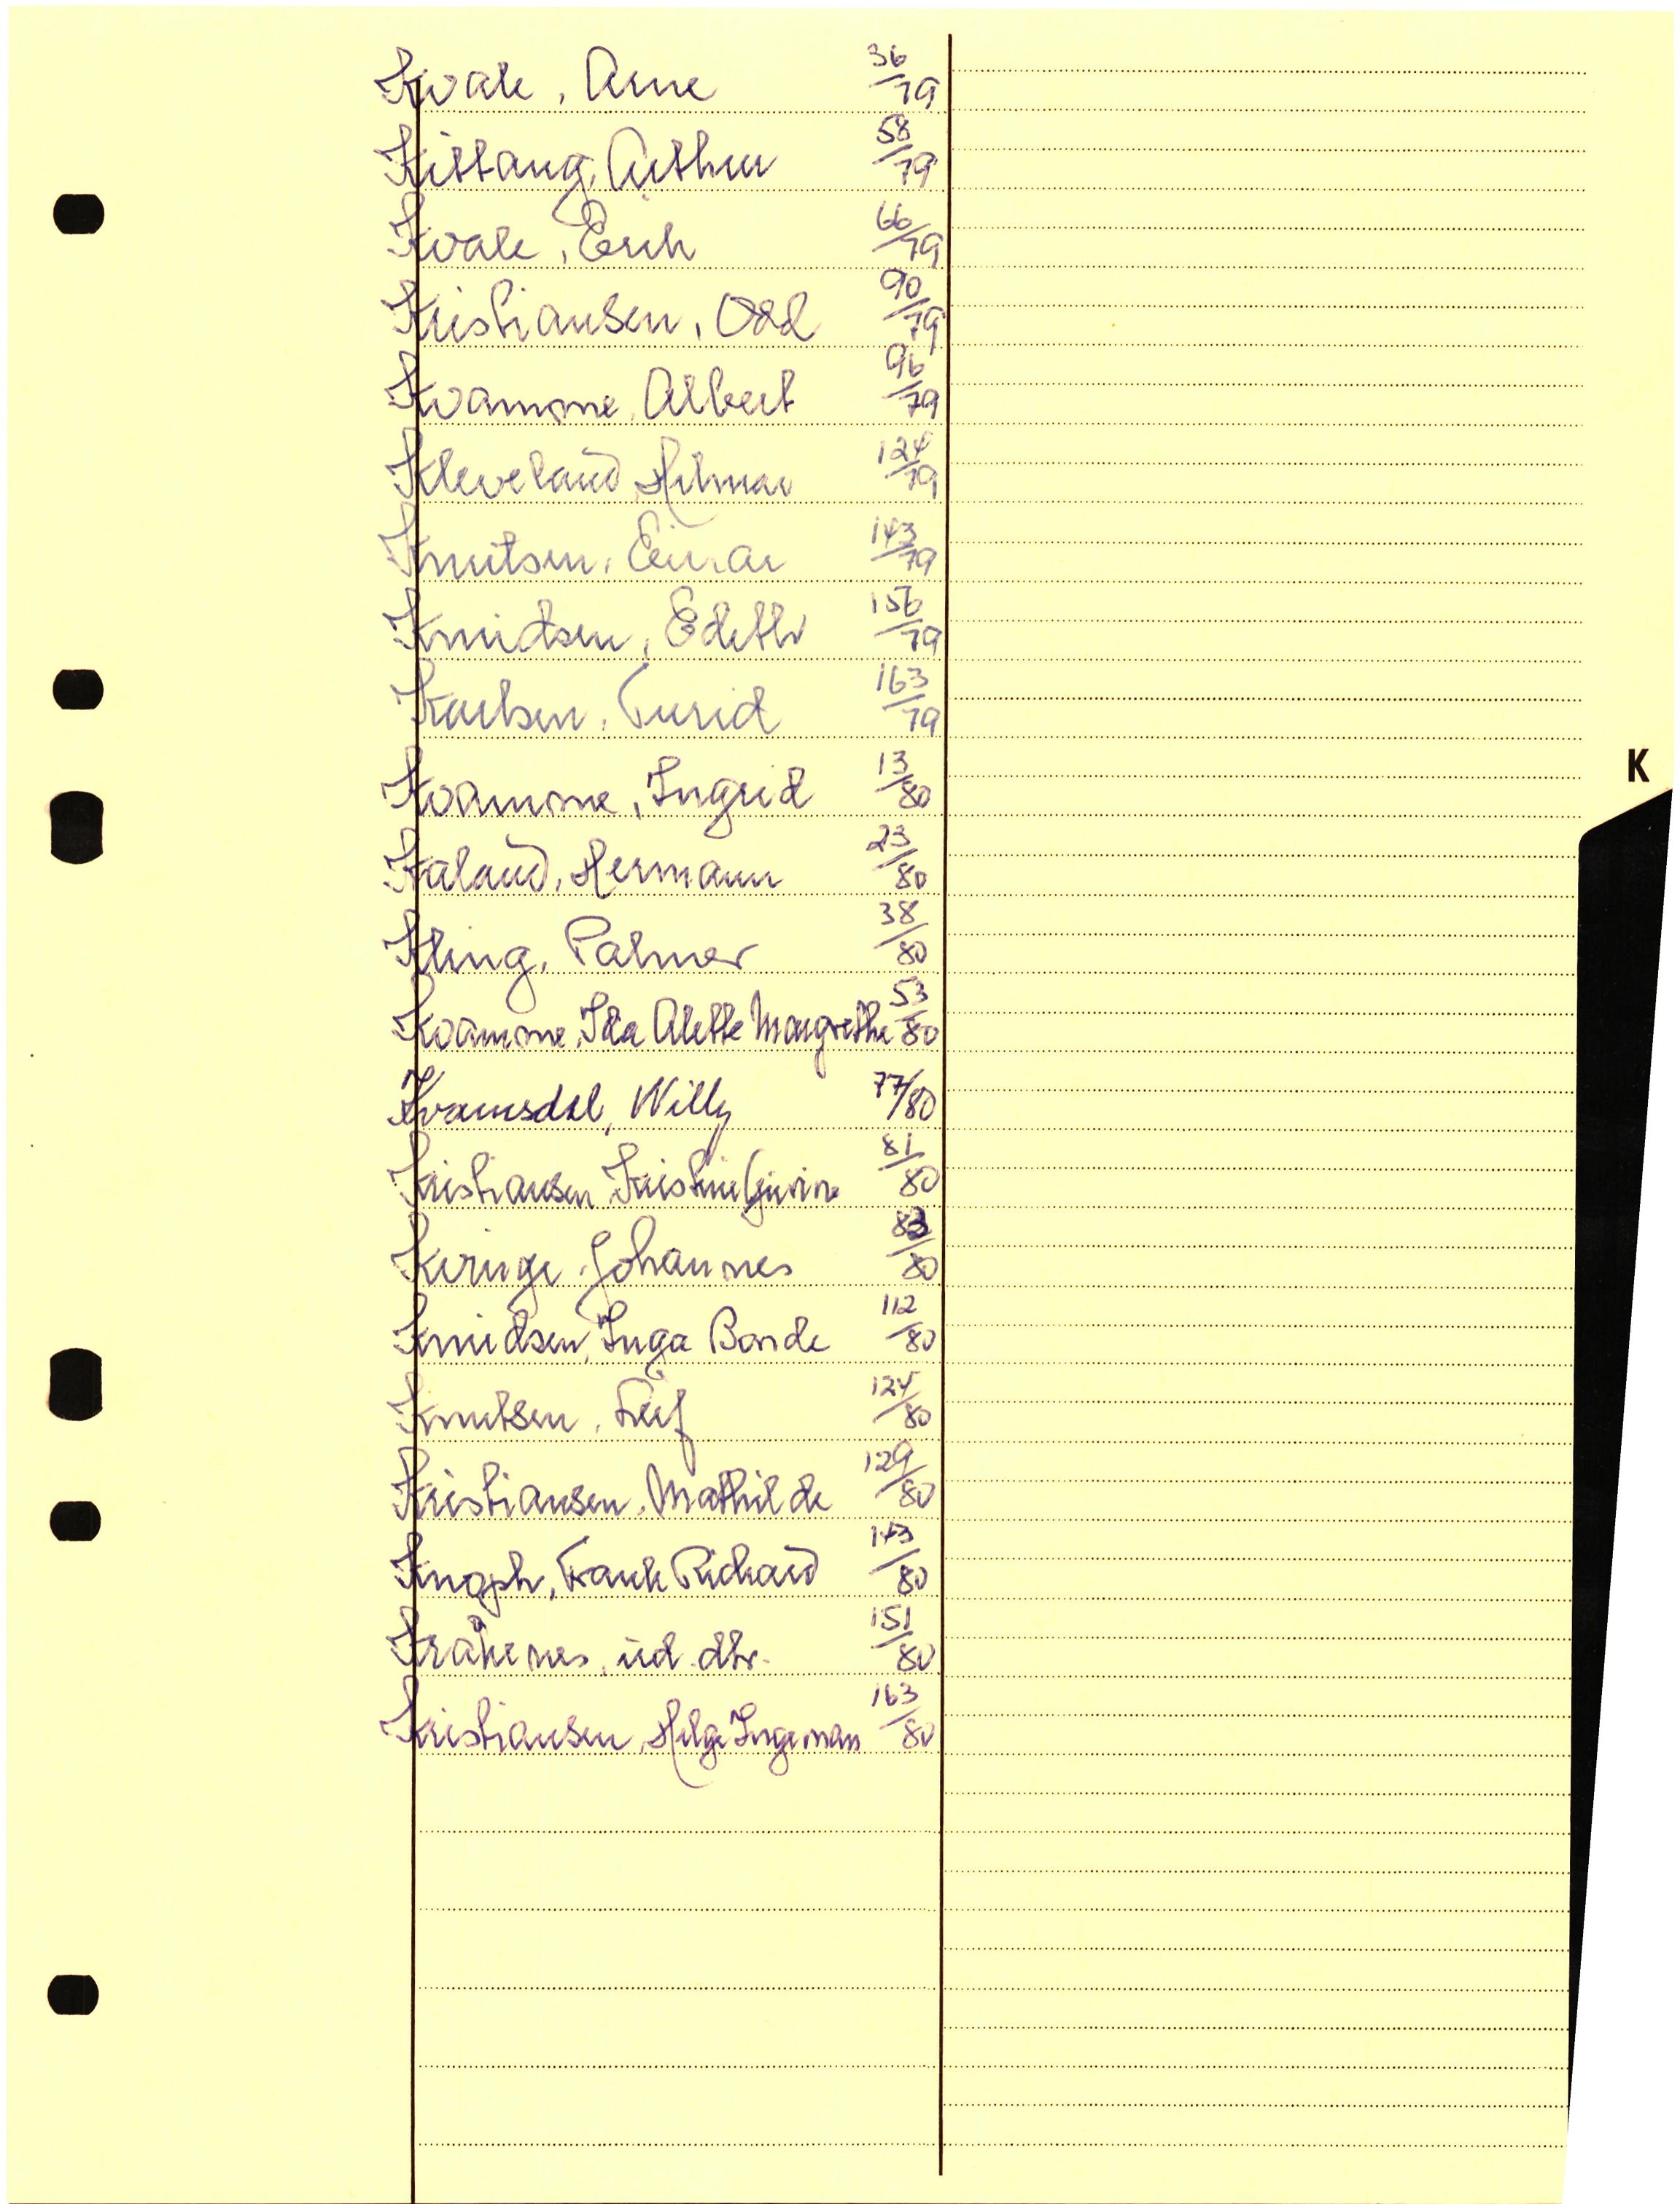 Kvale, Arne 36/79
Kittang, Arthur 58/79
Kvale, Erik 66/79
Kristiansen, Odd 90/79
Kvamme, Albert 96/79
Kleveland, Hilmar 124/79
Knutsen, Einar 143/79
Knudsen, Edith 156/79
Karlsen, Turid 163/79
Kvamme, Ingrid 13/80
K
Kaland, Hermann 23/80
Kling, Palmer 38/80
Kvamme, Ida Alette Margrethe 53/80
Kvamsdal, Willy 77/80
Kristiansen, Kristine 81/80
Kvinge, Johannes 83/80
Knudsen, Inga Bonde 112/80
Knutsen, Leif 124/80
Kristiansen, Mathilde 129/80
Frank Richard 143/80
Kråkenes, ud. dbr. 151/80
Kristiansen, Helge Ingeman 163/80